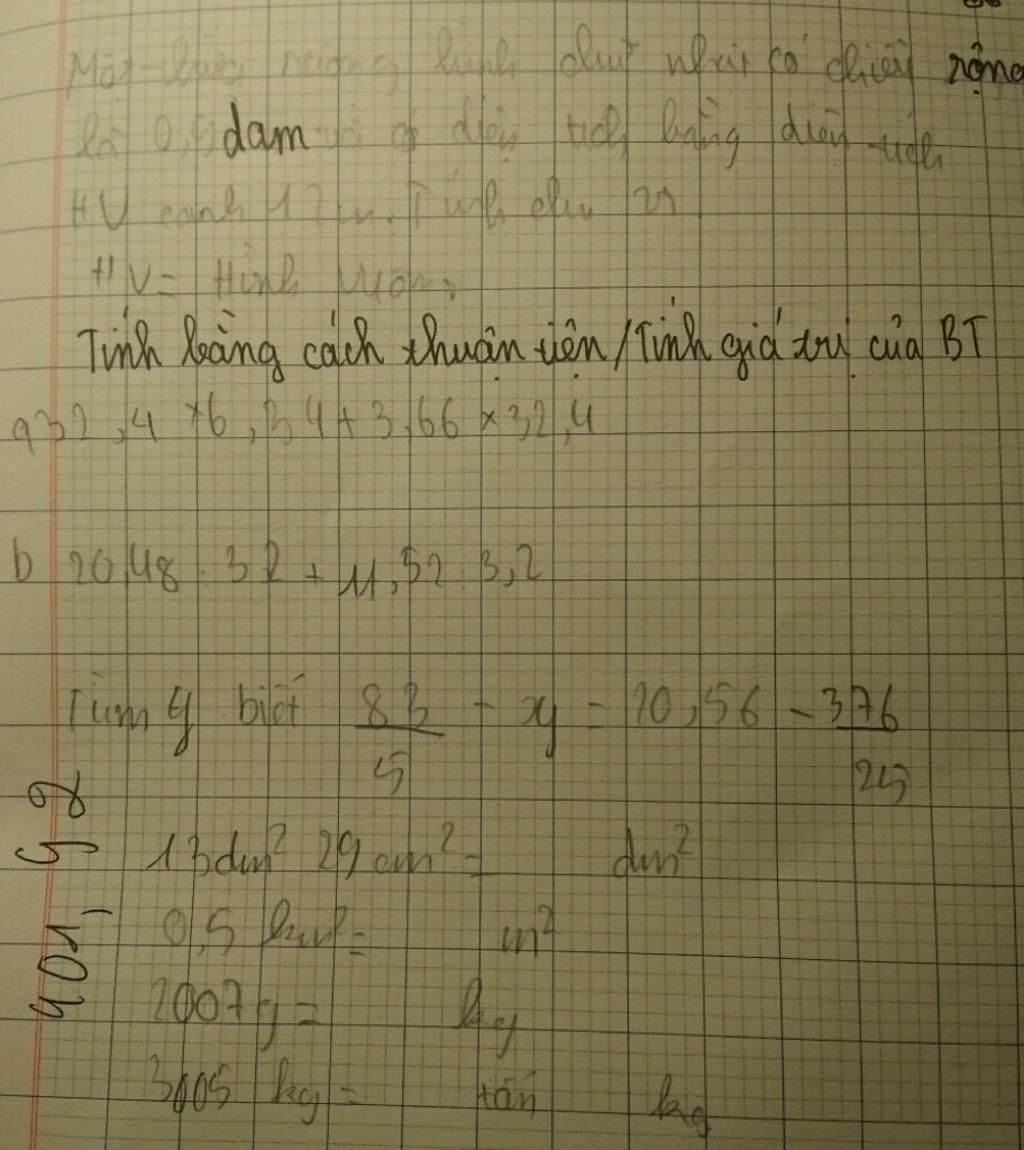 Một thửa ruộng hình chữ nhật có chiều rộng
là 0, dam và có diện tích bằng diện tích
HV cạnh 12m. Tính chu vi
HV = Hình vuông
Tính bằng cách thuận tiện/Tính giá trị của BT
a 32,4 × 6,34 + 3,66 × 32,4
b 20,48 . 32 + 11,52 . 3,2
Tìm y biết 83/5 - y = 20,56 - 376/25
13dm² 29cm² = dm²
0,5 km² = m²
2007g = kg
3005 kg = tấn kg
401, 92